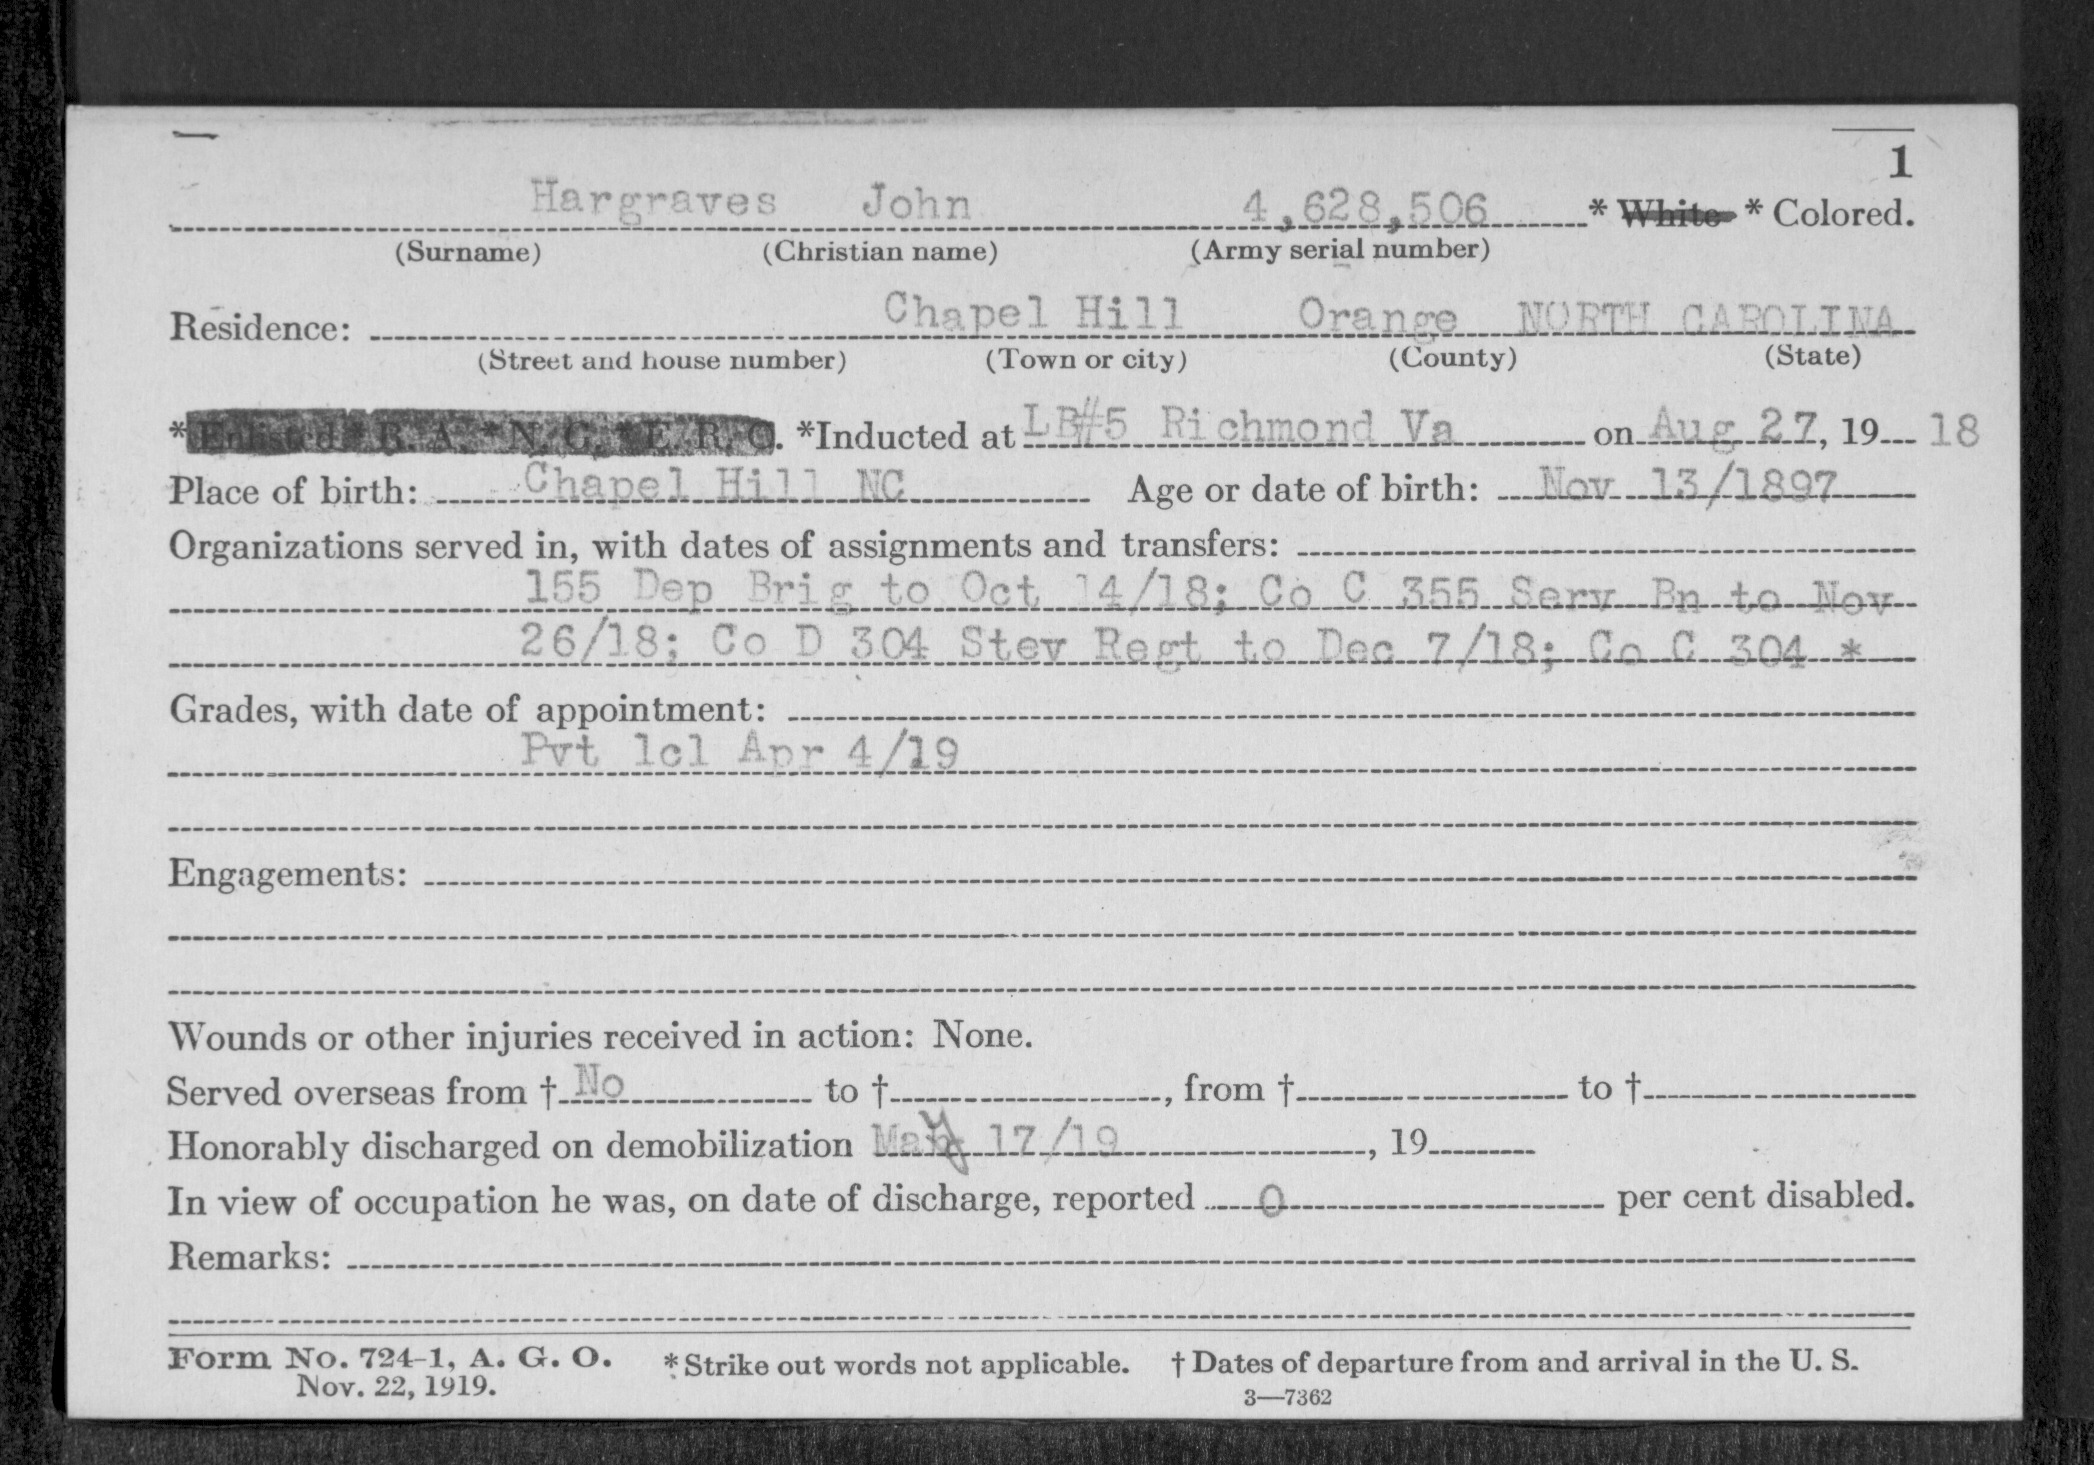 1
Hargraves John 4,628,506 * White * Colored.
(Surname) (Christian name) (Army serial number)
Residence: Chapel Hill Orange NORTH CAROLINA
(Street and house number) (Town or city) (County) (State)
*Enlisted * R. A. * N. G. * E. R. C. *Inducted at LB#5 Richmond Va on Aug 27, 19 18
Place of birth: Chapel Hill NC Age or date of birth: Nov 13/1897
Organizations served in, with dates of assignments and transfers:
155 Dep Brig to Oct 14/18; Co C 355 Serv Bn to Nov
26/18; Co D 304 Stev Regt to Dec 7/18; Co C 304 *
Grades, with date of appointment:
Pvt 1cl Apr 4/19
Engagements:
Wounds or other injuries received in action: None.
Served overseas from † No to †, from † to †
Honorably discharged on demobilization May 17/19, 19
In view of occupation he was, on date of discharge, reported 0 per cent disabled.
Remarks:
Form No. 724-1, A. G. O. *Strike out words not applicable. † Dates of departure from and arrival in the U. S.
Nov. 22, 1919. 3—7362